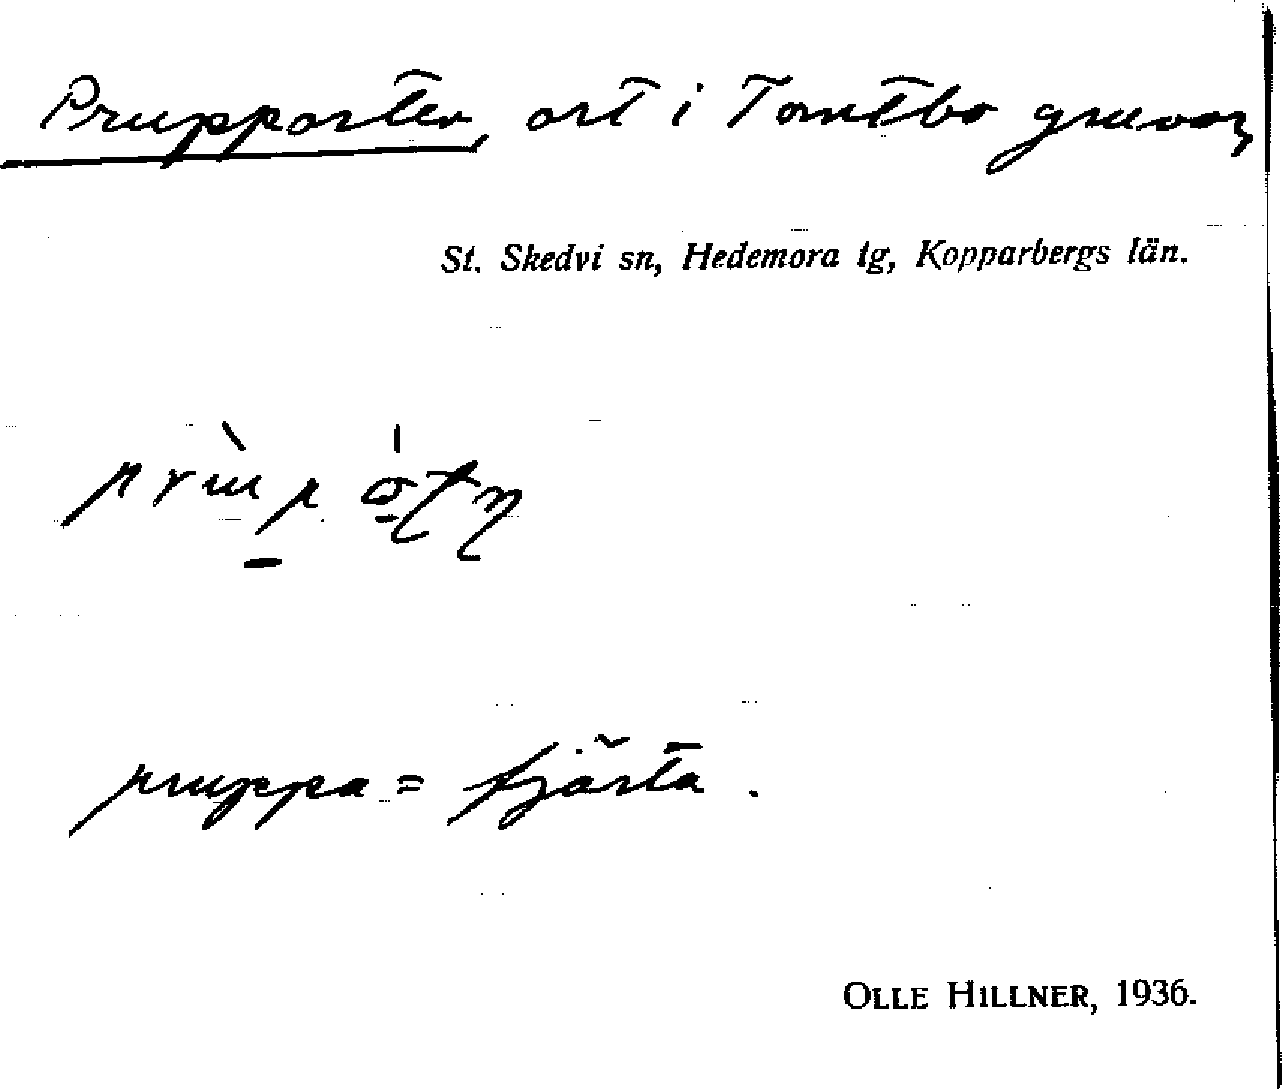 Prupporten, ort i Tomtbo gruvor,
St. Skedvi sn, Hedemora tg, Kopparbergs län.
pruppa = fjärta.
OLLE HILLNER, 1936.